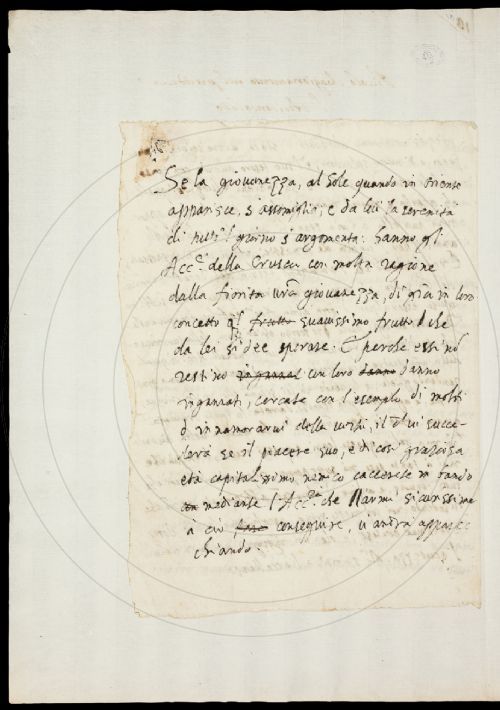 Se la giovanezza, al Sole quando in oriente
apparisce, s'assomiglia, e da lei la serenità
di tutto 'l giorno s'argomenta: hanno gli
Acc.ci della Crusca con molta ragione
dalla fiorita vra giovanezza, di già in loro
concetto frutto suavissimo frutto che
da lei si dee sperare. E perche essi nō
restino ingannati con loro danno danno
ingannati, cercate con l'esempio di molti
d'innamorarvi della virtù, il
se il piacere suo, e di così graziosa
età capitalissimo nemico caccerete in bando
con mediante l'Acc.a che l'armi sicurissime
à ciò fare conseguire, vi andrà apparec-
chiando.